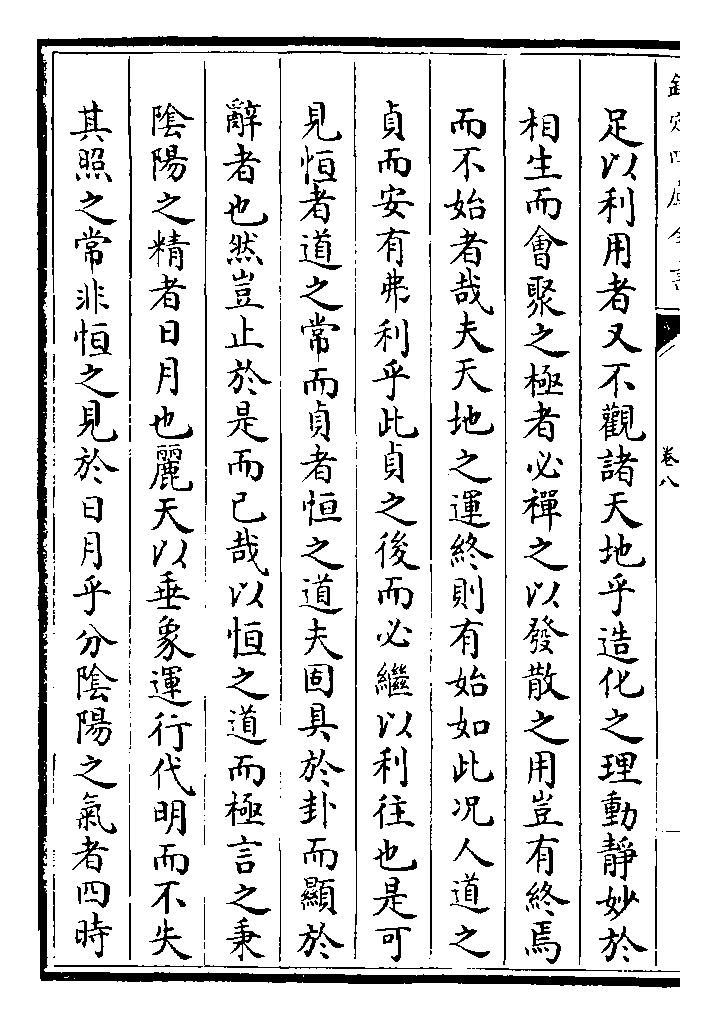 欽定四庫全書
卷八
足以利用者又不觀諸天地乎造化之理動靜妙於
相生而會聚之極者必禪之以發散之用豈有終焉
而不始者哉夫天地之運終則有始如此况人道之
貞而安有弗利乎此貞之後而必繼以利往也是可
見恒者道之常而貞者恒之道夫固具於卦而顯於
辭者也然豈止於是而已哉以恒之道而極言之秉
陰陽之精者日月也麗天以垂象運行代明而不失
其照之常非恒之見於日月乎分陰陽之氣者四時